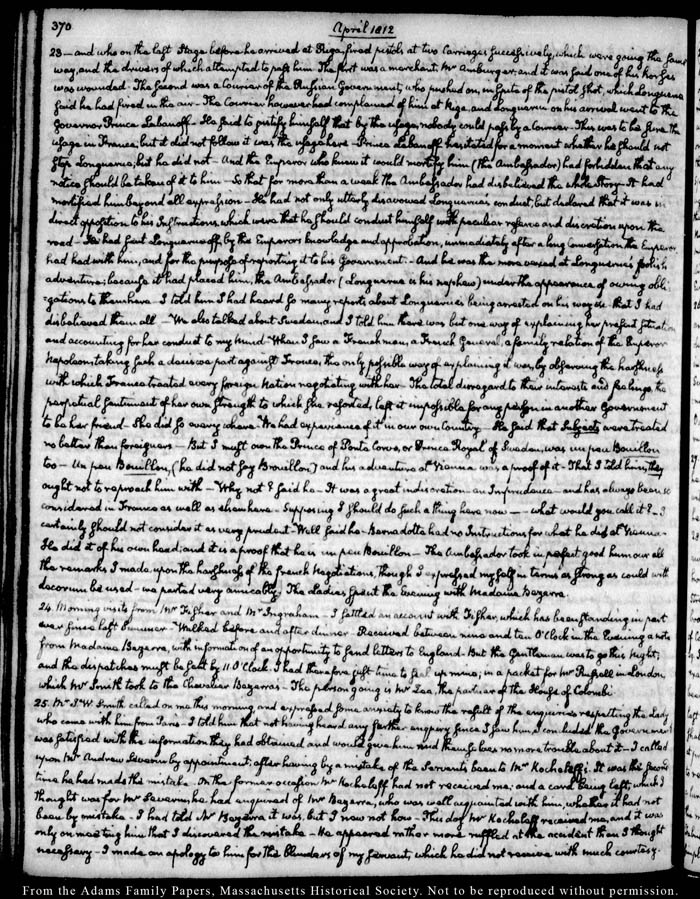 370
April 1812
23 — and who on the last Stage before he arrived at Riga, fired pistols at two Carriages successively, which were going the same
way, and the drivers of which attempted to pass him. The first was a merchant, Mr Amburger; and it was said one of his horses
was wounded. The second was a Courier of the Russian Government, who pushed on, in spite of the pistol shot, which Longuerue
said he had fired in the air. The Courier however had complained of him at Riga, and Longuerue on his arrival went to the
Governor Prince Labanoff. He said to justify himself that by the usage, nobody could pass by a Courier. This was to be sure the
usage in France, but it did not follow it was the usage here. Prince Labanoff hesitated for a moment whether he should not
stop Longuerue, but he did not. And the Emperor who knew it would mortify him (the Ambassador) had forbidden that any
notice should be taken of it to him. So that for more than a week the Ambassador had disbelieved the whole Story. It had
mortified him beyond all expression. He had not only utterly disavowed Longuerue's conduct, but declared that it was in
direct opposition to his Instructions, which were that he should conduct himself with peculiar reserve and discretion upon the
road. He had sent Longuerue off, by the Emperor's knowledge and approbation, immediately after a long Conversation the Emperor
had had with him, and for the purpose of reporting it to his Government. And he was the more vexed at Longuerue's foolish
adventure; because it had placed him, the Ambassador (Longuerue is his nephew) under the appearance of owing obli-
gations to them here. I told him I had heard so many reports about Longuerue's being arrested on his way &c. that I had
disbelieved them all. We also talked about Sweden, and I told him there was but one way of explaining her present situation
and accounting for her conduct to my mind. When I saw a Frenchman, a French General, a family relation of the Emperor
Napoleon taking such a decisive part against France, the only possible way of explaining it was, by observing the harshness
with which France treated every foreign Nation negotiating with her. The total disregard to their interests and feelings, the
perpetual sentiment of her own strength to which she resorted, left it impossible for any person in another Government
to be her friend. She did so every where. We had experience of it in our own Country. He said that Subjects were treated
no better than foreigners — But I must own the Prince of Ponte Corvo, or Prince Royal of Sweden, was un peu Bouillon
too — Un peu Bouillon, (he did not say Brouillon) and his adventure at Vienna was a proof of it. That I told him, they
ought not to reproach him with. Why not? said he. It was a great indiscretion — an Imprudence — and has always been so
considered in France as well as elsewhere. Supposing I should do such a thing here now — what would you call it? I
certainly should not consider it as very prudent. Well said he. Bernadotte had no Instructions for what he did at Vienna.
He did it of his own head; and it is a proof that he is un peu Bouillon. The Ambassador took in perfect good humour all
the remarks I made upon the harshness of the French Negotiations, though I expressed myself in terms as strong as could with
decorum be used. We parted very amicably. The Ladies spent the Evening with Madame Bezerra.
24. Morning visits from Mr Fisher and Mr Ingraham. I settled an account with Fisher, which has been standing in part
ever since last Summer. Walked before and after dinner. Received between nine and ten O'Clock in the Evening a note
from Madame Bezerra, with information of an opportunity to send letters to England. But the Gentleman was to go this Night;
and the dispatches must be sent by 11 O'Clock. I had therefore just time to seal up mine, in a packet for Mr Russell in London
which Mr Smith took to the Chevalier Bezerra's. The person going is Mr Lea, the partner of the House of Colombi
25. Mr J. W. Smith called on me this morning, and expressed some anxiety to know the result of the enquiries respecting the Lady
who came with him from Paris. I told him that not having heard any further enquiry since I saw him I concluded the Government
was satisfied with the information they had obtained and would give him and themselves no more trouble about it. I called
upon Mr Andrew Severin by appointment; after having by a mistake of the Servants been to Mr Kocheleff's. It was the second
time he had made the mistake. On the former occasion Mr Kocheleff had not received me; and a card being left, which I
thought was for Mr Severin, he had enquired of Mr Bezerra, who was well acquainted with him, whether it had not
been by mistake. I had told Mr Bezerra it was, but I knew not how. This day Mr Kocheleff received me, and it was
only on meeting him that I discovered the mistake. He appeared rather more ruffled at the accident than I thought
necessary. I made an apology to him for the blunders of my servant, which he did not receive with much courtesy.
From the Adams Family Papers, Massachusetts Historical Society. Not to be reproduced without permission.